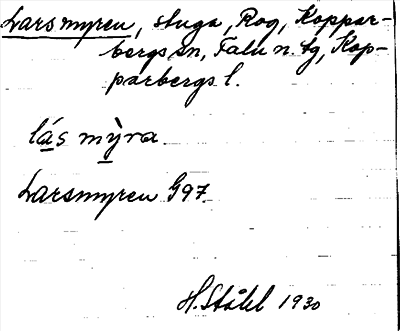 Larsmyren, stuga, Rog, Koppar-
bergs sn, Falu n. tg, Kop-
parbergs l.
lás mỳra
Larsmyren G97
H. Ståhl 1930